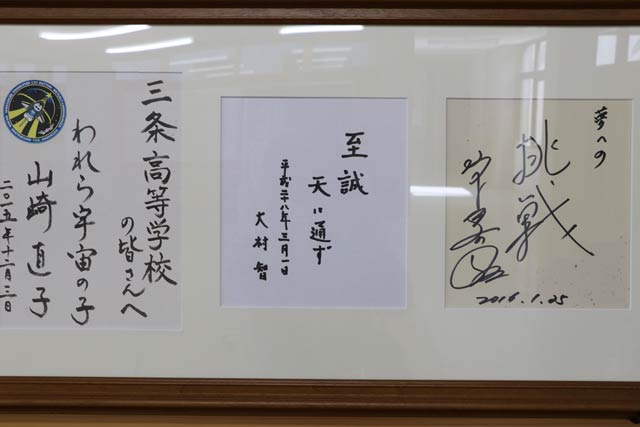 夢への
挑戦
2016.1.25
至誠
天に通ず
平成二十八年三月一日
大村智
三条高等学校
の皆さんへ
われら宇宙の子
山崎直子
二〇一五年十二月三日